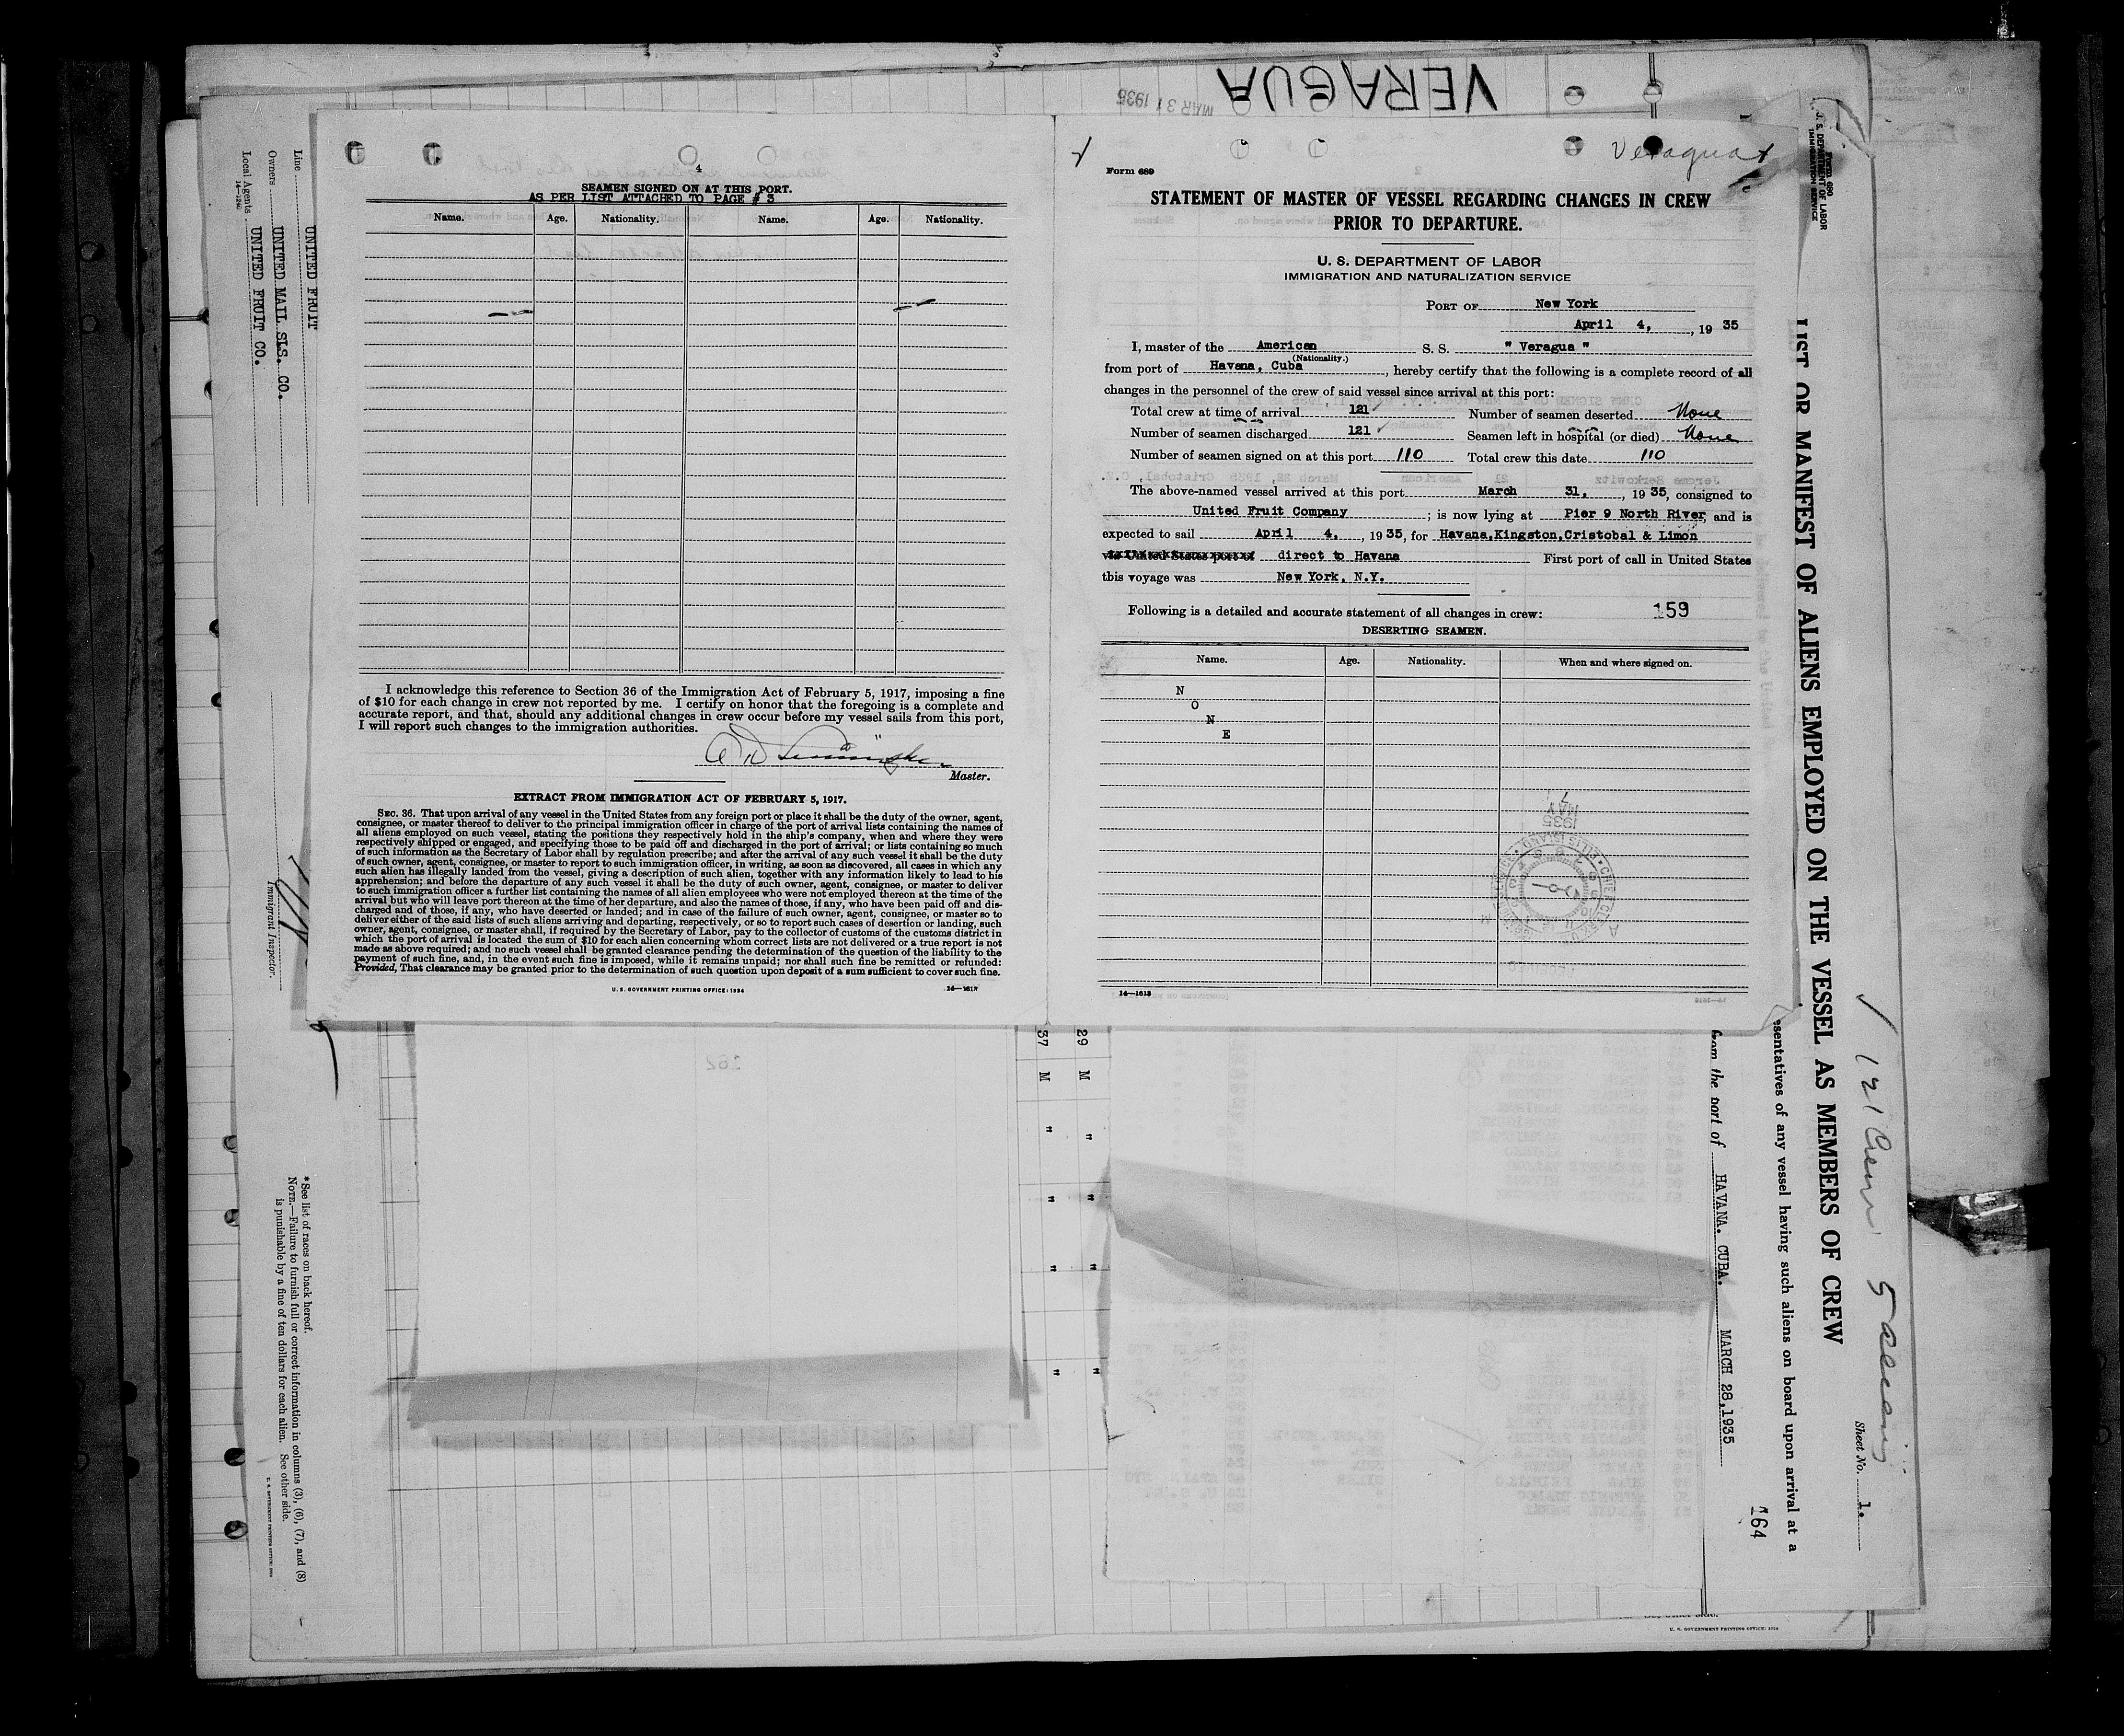 VERAGUA
MAR 31 1935
4
SEAMEN SIGNED ON AT THIS PORT.
AS PER LIST ATTACHED TO PAGE # 3
Name. Age. Nationality. Name. Age. Nationality.
I acknowledge this reference to Section 36 of the Immigration Act of February 5, 1917, imposing a fine
of $10 for each change in crew not reported by me. I certify on honor that the foregoing is a complete and
accurate report, and that, should any additional changes in crew occur before my vessel sails from this port,
I will report such changes to the immigration authorities.
Master.
EXTRACT FROM IMMIGRATION ACT OF FEBRUARY 5, 1917.
SEC. 36. That upon arrival of any vessel in the United States from any foreign port or place it shall be the duty of the owner, agent,
consignee, or master thereof to deliver to the principal immigration officer in charge of the port of arrival lists containing the names of
all aliens employed on such vessel, stating the positions they respectively hold in the ship's company, when and where they were
respectively shipped or engaged, and specifying those to be paid off and discharged in the port of arrival; or lists containing so much
of such information as the Secretary of Labor shall by regulation prescribe; and after the arrival of any such vessel it shall be the duty
of such owner, agent, consignee, or master to report to such immigration officer, in writing, as soon as discovered, all cases in which any
such alien has illegally landed from the vessel, giving a description of such alien, together with any information likely to lead to his
apprehension; and before the departure of any such vessel it shall be the duty of such owner, agent, consignee, or master to deliver
to such immigration officer a further list containing the names of all alien employees who were not employed thereon at the time of the
arrival but who will leave port thereon at the time of her departure, and also the names of those, if any, who have been paid off and dis-
charged and of those, if any, who have deserted or landed; and in case of the failure of such owner, agent, consignee, or master so to
deliver either of the said lists of such aliens arriving and departing, respectively, or so to report such cases of desertion or landing, such
owner, agent, consignee, or master shall, if required by the Secretary of Labor, pay to the collector of customs of the customs district in
which the port of arrival is located the sum of $10 for each alien concerning whom correct lists are not delivered or a true report is not
made as above required; and no such vessel shall be granted clearance pending the determination of the question of the liability to the
payment of such fine, and, in the event such fine is imposed, while it remains unpaid; nor shall such fine be remitted or refunded:
Provided, That clearance may be granted prior to the determination of such question upon deposit of a sum sufficient to cover such fine.
U. S. GOVERNMENT PRINTING OFFICE: 1934 14—1613
Veragua
Form 689
STATEMENT OF MASTER OF VESSEL REGARDING CHANGES IN CREW
PRIOR TO DEPARTURE.
U. S. DEPARTMENT OF LABOR
IMMIGRATION AND NATURALIZATION SERVICE
PORT OF New York
April 4, , 19 35
I, master of the American S. S. " Veragua "
(Nationality.)
from port of Havana, Cuba , hereby certify that the following is a complete record of all
changes in the personnel of the crew of said vessel since arrival at this port:
Total crew at time of arrival 121 Number of seamen deserted None
Number of seamen discharged 121 Seamen left in hospital (or died) None
Number of seamen signed on at this port 110 Total crew this date 110
The above-named vessel arrived at this port March 31, , 19 35, consigned to
United Fruit Company ; is now lying at Pier 9 North River, and is
expected to sail April 4, , 19 35, for Havana,Kingston,Cristobal & Limon
via United States port of direct to Havana First port of call in United States
this voyage was New York, N.Y.
Following is a detailed and accurate statement of all changes in crew: 159
DESERTING SEAMEN.
Name. Age. Nationality. When and where signed on.
N
O
N
E
14—1613
Line UNITED FRUIT
Owners UNITED MAIL SLS. CO.
Local Agents UNITED FRUIT CO.
14—1240
Immigrant Inspector.
* See list of races on back hereof.
NOTE.—Failure to furnish full or correct information in columns (3), (6), (7), and (8)
is punishable by a fine of ten dollars for each alien. See other side.
29 M " " " "
37 M " " " "
162
Form 680
U. S. DEPARTMENT OF LABOR
IMMIGRATION SERVICE
LIST OR MANIFEST OF ALIENS EMPLOYED ON THE VESSEL AS MEMBERS OF CREW
esentatives of any vessel having such aliens on board upon arrival at a
from the port of HAVANA. CUBA. MARCH 28,1935
121 Crew 5 aliens
Sheet No. 1.
164
U. S. GOVERNMENT PRINTING OFFICE: 1934